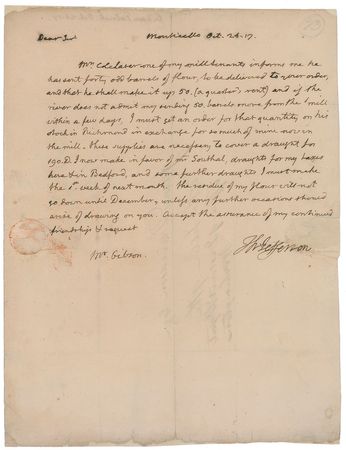 Dear Sir Monticello Oct. 24. 17.
Mr. Colclaser one of my mill tenants informs me he
has sent forty odd barrels of flour, to be delivered to your order,
and that he shall make it up 50. (a quarter's rent) and if the
river does not admit my sending 50. barrels more from the mill
within a few days, I must get an order for that quantity on his
stock in Richmond in exchange for so much of mine now in
the mill. these supplies are necessary to cover a draught for
190. D. I now make in favor of Mr. Southal, draughts for my taxes
here & in Bedford, and some further draughts I must make
the 1st week of next month. the residue of my flour will not
go down until December, unless any further occasions should
arise of drawing on you. Accept the assurance of my continued
friendship & respect
Th: Jefferson
Mr. Gibson.